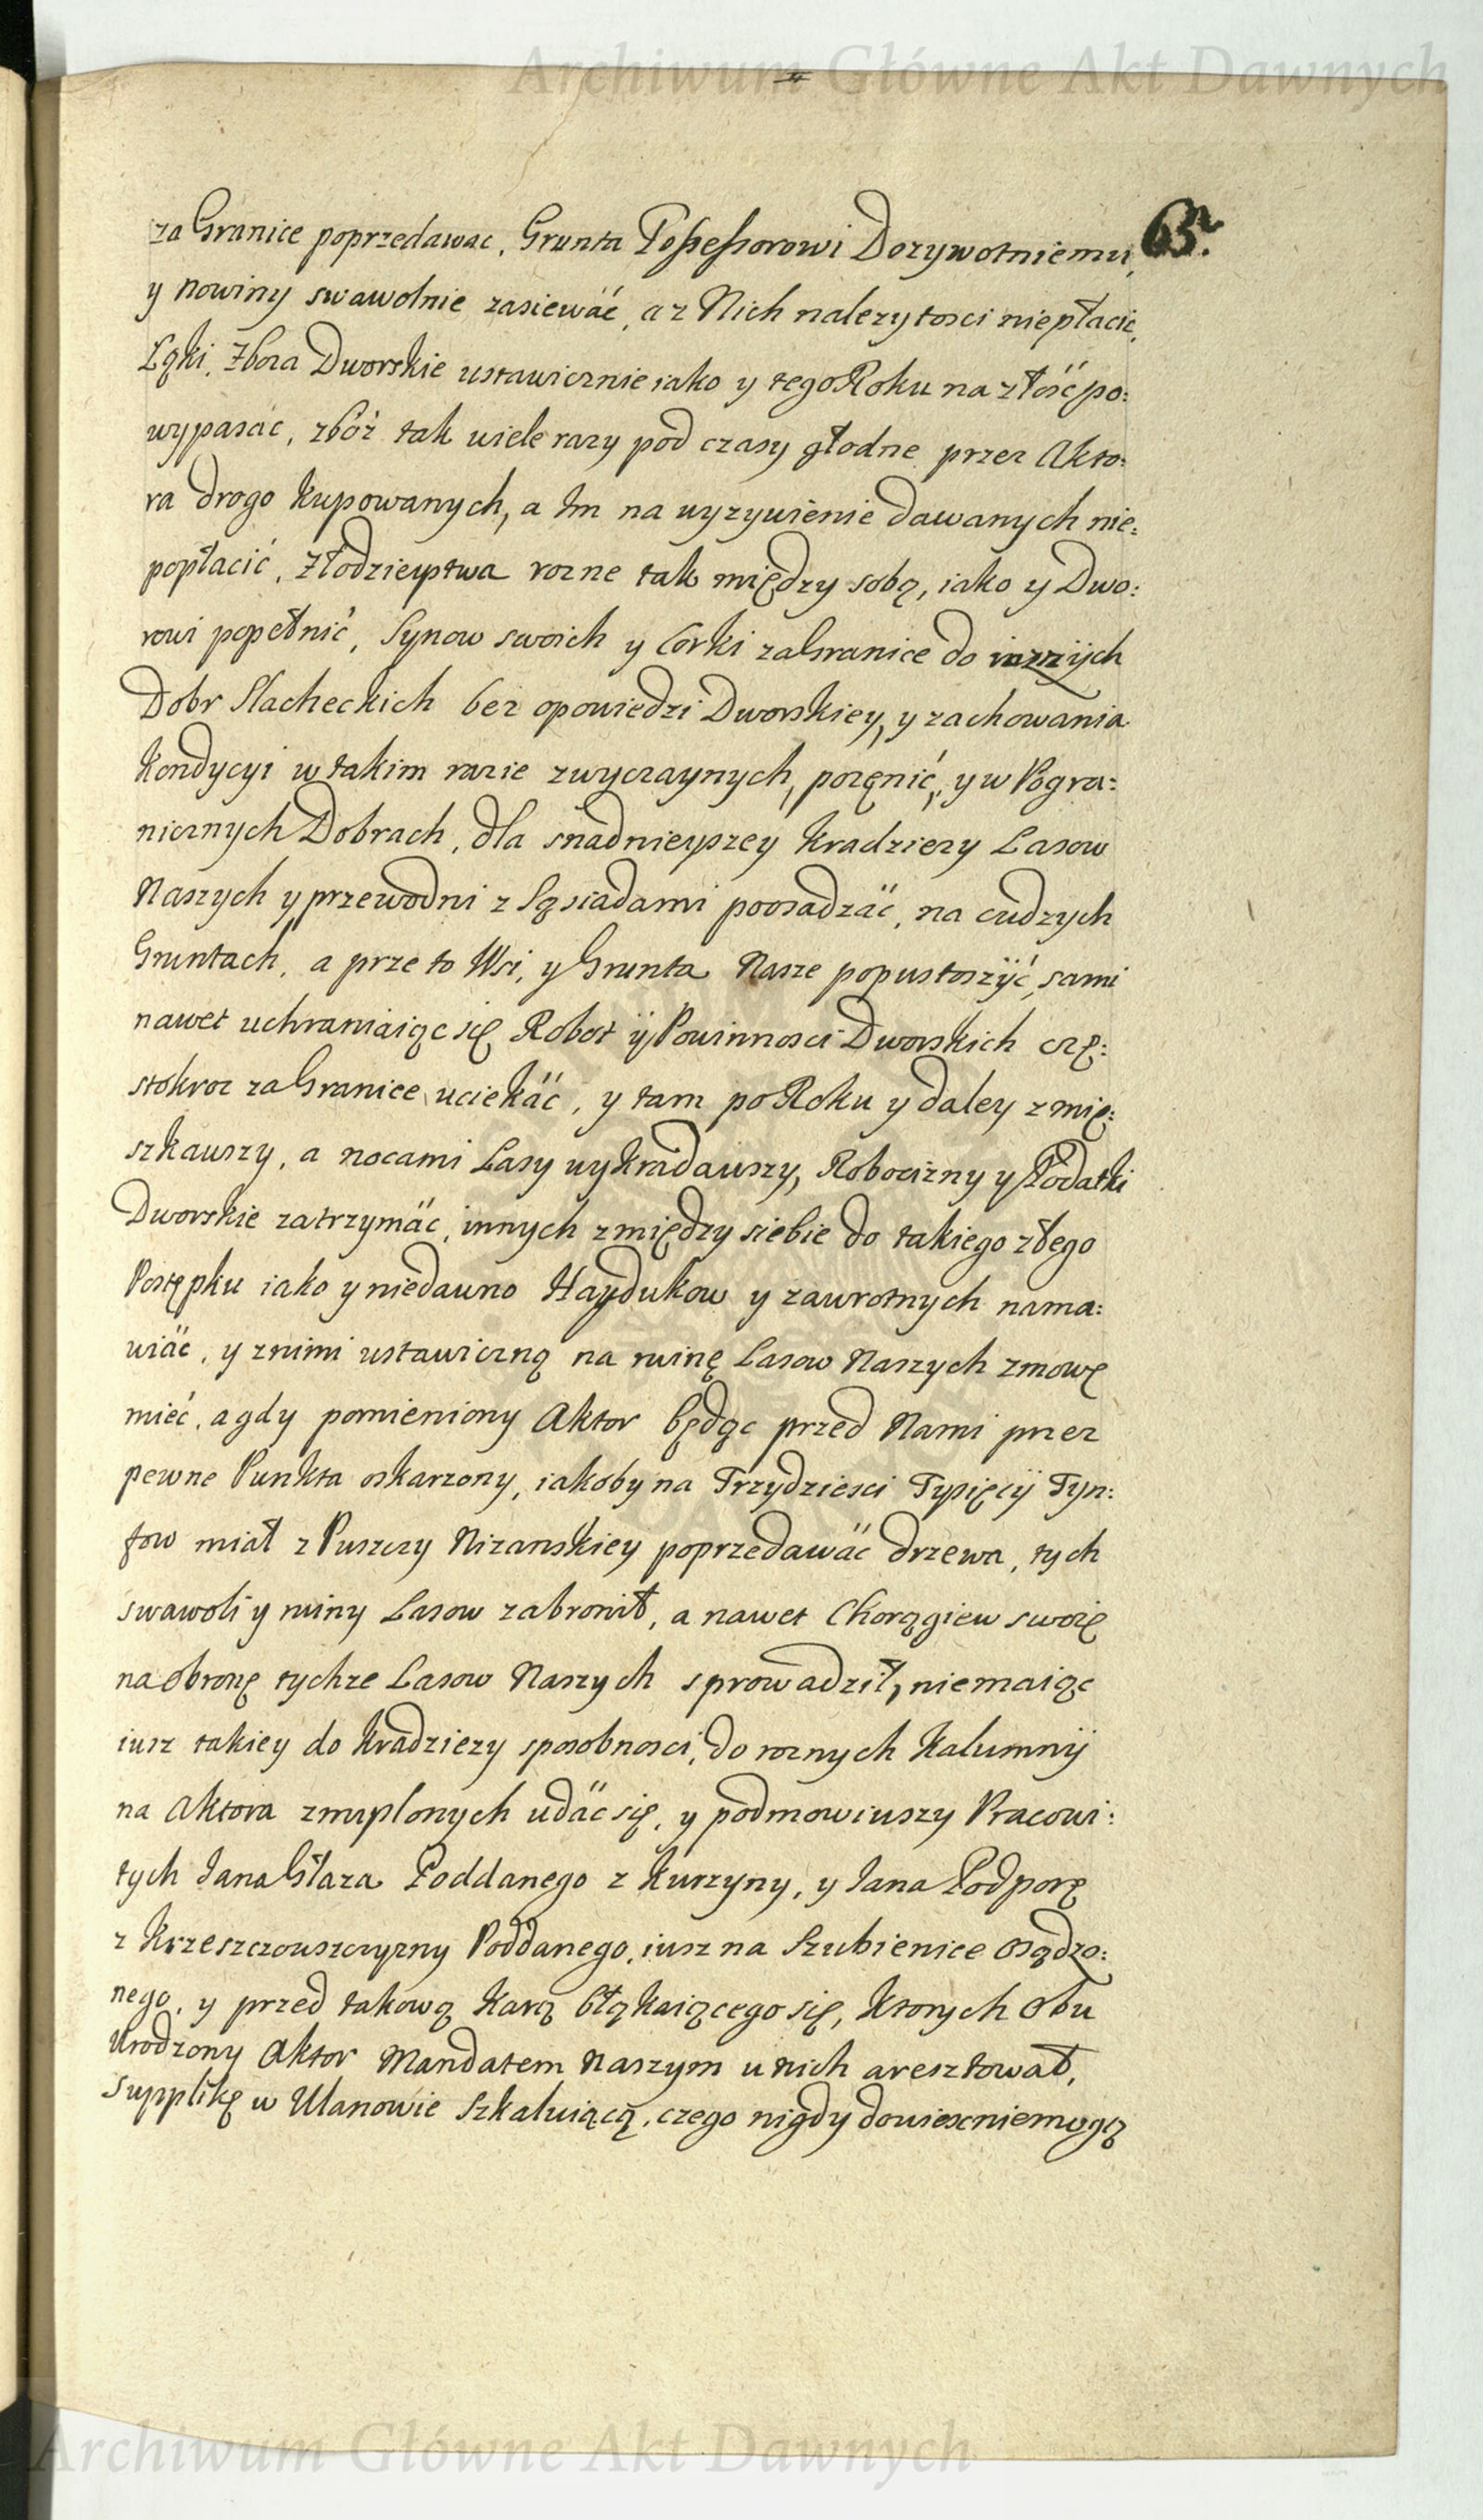 Archiwum Główne Akt Dawnych
63.
za Granice poprzedawac, Grunta Possessorowi Dozywotniemu,
y nowiny swawolnie zasiewáć, a z Nich nalezytosci niepłacic,
Łąki, Zboza Dworskie ustawicznie iako y tego Roku na złość po:
wypasac, zbóż tak wiele razy pod czasy głodne przez Akto:
ra drogo kupowanych, a Im na wyzywienie dawanych nie:
popłacić, Złodzieystwa rozne tak między sobą, iako y Dwo:
rowi popełnić, Synow swoich y Corki za Granice do inszych
Dobr Slacheckich bez opowiedzi Dworskiey, y zachowania
Kondycyi w takim razie zwyczaynych, pozęnić, y w Pogra:
nicznych Dobrach, dla snadnieyszey kradziezy Lasow
Naszych y przewodni z Sąsiadami poosadzäć, na cudzych
Gruntach, a prze to Wsi, y Grunta Nasze popustoszÿć, sami
nawet uchraniaiąc się Robot ÿ Powinnosci Dworskich czę:
stokroc za Granice uciekäć, y tam po Roku y daley zmię:
szkawszy, a nocami Lasy wykradawszy, Robocizny y Podatki
Dworskie zatrzymäć, innych zmiędzy siebie do takiego złego
Postępku iako y niedawno Haydukow y zawrotnych nama:
wiäć, y znimi ustawiczną na ruinę Lasow Naszych zmowę
mieć, a gdy pomieniony Aktor będąc przed Nami przez
pewne Punkta oskarzony, iakoby na Trzydziesci Tysięcÿ Tyn:
fow miał z Puszczy Nizanskiey poprzedawäć drzewa, tych
swawoli y ruiny Lasow zabronił, a nawet Chorągiew swoię
na obronę tychze Lasow Naszych sprowadził, niemaiąc
iusz takiey do kradziezy sposobnosci, do roznych kalumnij
na Aktora zmyslonych udäć się, y podmowiwszy Pracowi:
tych Iana Głaza Poddanego z Kurzyny, y Iana Podporę
z Krzeszczowszczyzny Poddanego, iusz na Szubienice osądzo:
nego, y przed takową karą błąkaiącego się, ktorych obu
Urodzony Aktor Mandatem Naszym u nich aresztował,
Supplikę w Ulanowie szkaluiącą, czego nigdy dowiesc niemogą
Archiwum Główne Akt Dawnych